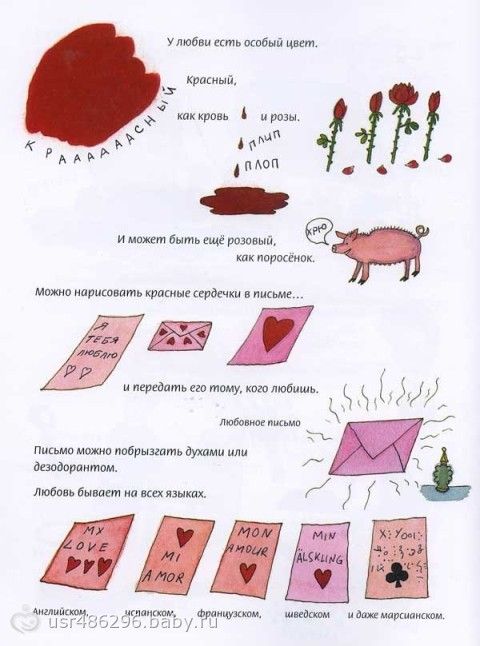 У любви есть особый цвет.
Красный,
КРАААААСНЫЙ
как кровь и розы.
ПЛИП
ПЛОП
И может быть ещё розовый,
как поросёнок.
ХРЮ
Можно нарисовать красные сердечки в письме...
Я
ТЕБЯ
ЛЮБЛЮ
и передать его тому, кого любишь.
Любовное письмо
Письмо можно побрызгать духами или
дезодорантом.
Любовь бывает на всех языках.
MY
LOVE
MI
AMOR
MON
AMOUR
MIN
ÄLSKLING
Английском, испанском, французском, шведском и даже марсианском.
usr486296.baby.ru